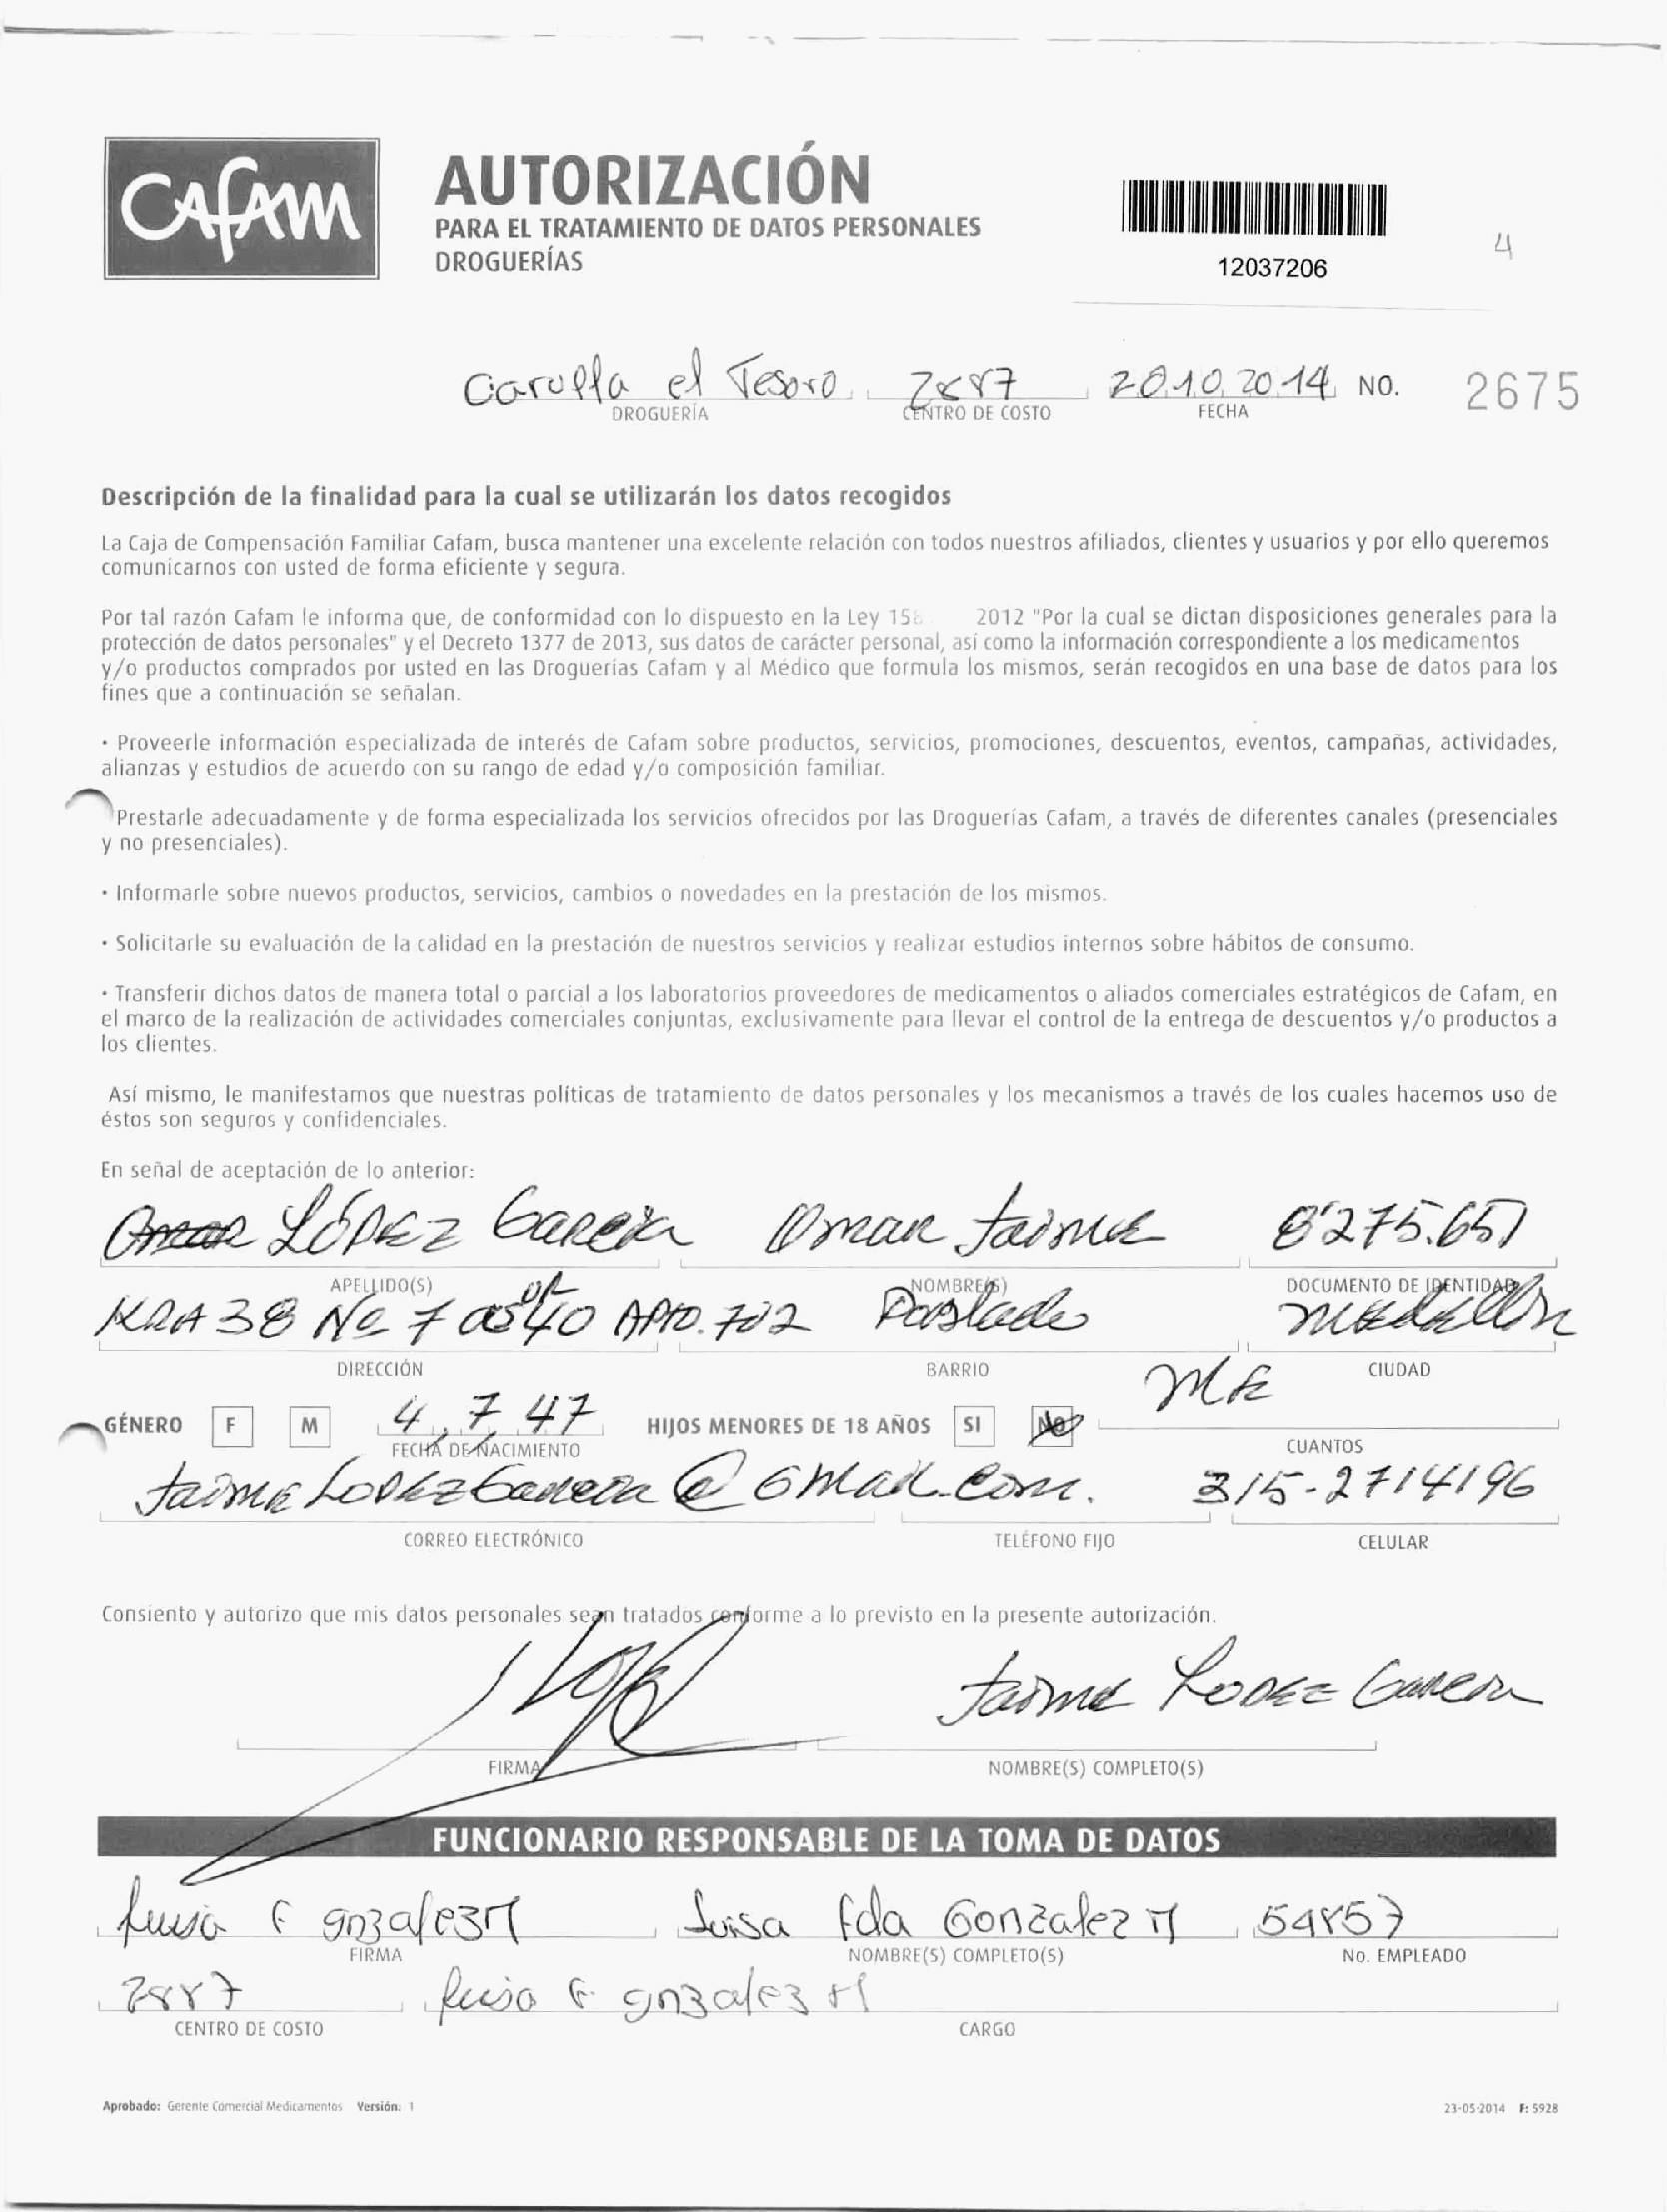 CAFAM
AUTORIZACIÓN
PARA EL TRATAMIENTO DE DATOS PERSONALES
DROGUERÍAS
12037206
4
Carulla el Tesoro 2887 20.10.2014 NO. 2675
DROGUERÍA CENTRO DE COSTO FECHA
Descripción de la finalidad para la cual se utilizarán los datos recogidos
La Caja de Compensación Familiar Cafam, busca mantener una excelente relación con todos nuestros afiliados, clientes y usuarios y por ello queremos
comunicarnos con usted de forma eficiente y segura.
Por tal razón Cafam le informa que, de conformidad con lo dispuesto en la Ley 2012 "Por la cual se dictan disposiciones generales para la
protección de datos personales" y el Decreto 1377 de 2013, sus datos de carácter personal, así como la información correspondiente a los medicamentos
y/o productos comprados por usted en las Droguerías Cafam y al Médico que formula los mismos, serán recogidos en una base de datos para los
fines que a continuación se señalan.
· Proveerle información especializada de interés de Cafam sobre productos, servicios, promociones, descuentos, eventos, campañas, actividades,
alianzas y estudios de acuerdo con su rango de edad y/o composición familiar.
Prestarle adecuadamente y de forma especializada los servicios ofrecidos por las Droguerías Cafam, a través de diferentes canales (presenciales
y no presenciales).
· Informarle sobre nuevos productos, servicios, cambios o novedades en la prestación de los mismos.
· Solicitarle su evaluación de la calidad en la prestación de nuestros servicios y realizar estudios internos sobre hábitos de consumo.
· Transferir dichos datos de manera total o parcial a los laboratorios proveedores de medicamentos o aliados comerciales estratégicos de Cafam, en
el marco de la realización de actividades comerciales conjuntas, exclusivamente para llevar el control de la entrega de descuentos y/o productos a
los clientes.
Así mismo, le manifestamos que nuestras políticas de tratamiento de datos personales y los mecanismos a través de los cuales hacemos uso de
éstos son seguros y confidenciales.
En señal de aceptación de lo anterior:
LÓPEZ GARCIA Omar Jaime 8'275.651
APELLIDO(S) NOMBRE(S) DOCUMENTO DE IDENTIDAD
KRA 38 No 7 40 APTO. 702 Poblado Medellin
DIRECCIÓN BARRIO CIUDAD
GÉNERO F M 4 7 47 HIJOS MENORES DE 18 AÑOS SI NO
FECHA DE NACIMIENTO CUANTOS
Jaime Lopez Garcia @ Gmail.com. 315-2714196
CORREO ELECTRÓNICO TELÉFONO FIJO CELULAR
Consiento y autorizo que mis datos personales sean tratados conforme a lo previsto en la presente autorización.
Jaime Lopez Garcia
FIRMA NOMBRE(S) COMPLETO(S)
FUNCIONARIO RESPONSABLE DE LA TOMA DE DATOS
Luisa F gonzalez M Luisa Fda Gonzalez M 54857
FIRMA NOMBRE(S) COMPLETO(S) No. EMPLEADO
2887 Luisa F. gonzalez M
CENTRO DE COSTO CARGO
Aprobado: Gerente Comercial Medicamentos Versión: 1 23-05-2014 F: 5928